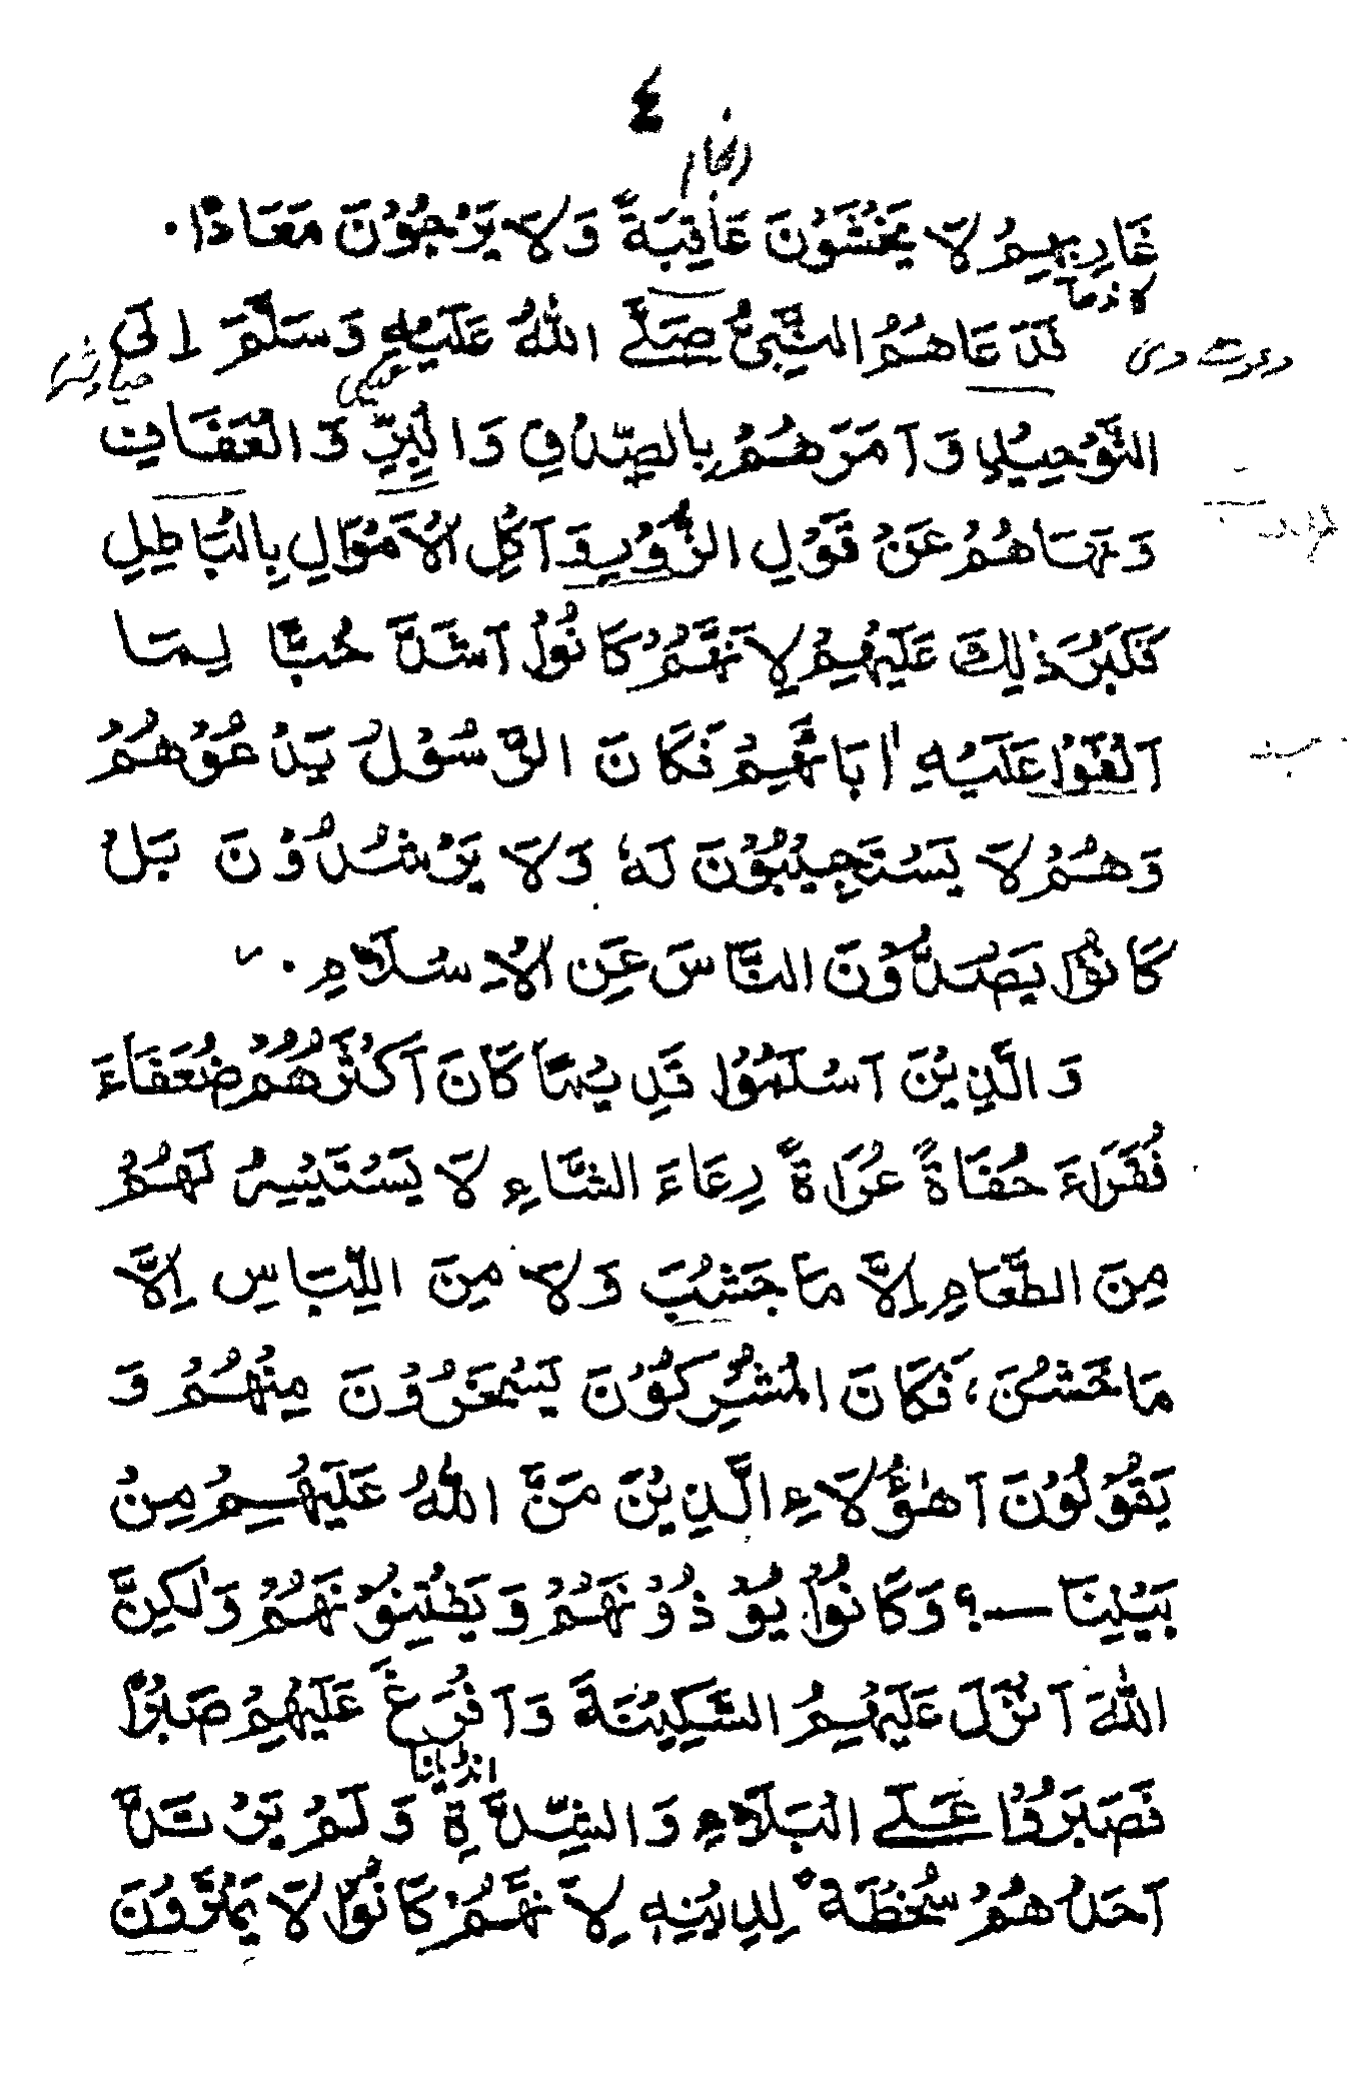 ٤
انجام
غَارِبِهِمُ لَا يَخْشَوْنَ عَاقِبَةً وَلَا يَرْجُوْنَ مَعَادًا ۰
دعوت دی فَدَعَاهُمُ النَّبِيُّ صَلَّے اللهُ عَلَيْهِ وَسَلَّمَ اِلَی
التَّوْحِيْدِ وَاَمَرَهُمْ بِالصِّدْقِ وَالْبِرِّ وَالْعَفَافِ
وَنَهَاهُمْ عَنْ قَوْلِ الزُّوْرِ وَاَكْلِ الْاَمْوَالِ بِالْبَاطِلِ
فَكَبُرَ ذٰلِكَ عَلَيْهِمْ لِاَنَّهُمْ كَانُوْا اَشَدَّ حُبًّا لِمَا
اَلْفَوْا عَلَيْهِ اٰبَائَهُمْ فَكَانَ الرَّسُوْلُ يَدْعُوْهُمْ
وَهُمْ لَا يَسْتَجِيْبُوْنَ لَهٗ وَلَا يَرْشُدُوْنَ بَلْ
كَانُوْا يَصُدُّوْنَ النَّاسَ عَنِ الْاِسْلَامِ ۰
وَالَّذِيْنَ اَسْلَمُوْا قَدِيْمًا كَانَ اَكْثَرُهُمْ ضُعَفَاءَ
فُقَرَاءَ حُفَاةً عُرَاةً رِعَاءَ الشَّاءِ لَا يَسْتَيْسِرُ لَهُمْ
مِنَ الطَّعَامِ اِلَّا مَا جَشُبَ وَلَا مِنَ اللِّبَاسِ اِلَّا
مَا خَشُنَ، فَكَانَ الْمُشْرِكُوْنَ يَسْخَرُوْنَ مِنْهُمْ وَ
يَقُوْلُوْنَ اَهٰؤُلَاءِ الَّذِيْنَ مَنَّ اللهُ عَلَيْهِمْ مِنْ
بَيْنِنَا —؟ وَكَانُوْا يُؤْذُوْنَهُمْ وَيَفْتِنُوْنَهُمْ وَلٰكِنَّ
اللهَ اَنْزَلَ عَلَيْهِمُ السَّكِيْنَةَ وَاَفْرَغَ عَلَيْهِمْ صَبْرًا
انڈیلنا
فَصَبَرُوْا عَلَے الْبَلَاءِ وَالشِّدَّةِ وَلَمْ يَرْتَدَّ
اَحَدُهُمْ سُخْطَةً لِدِيْنِهٖ لِاَنَّهُمْ كَانُوْا لَا يَمْتَرُوْنَ